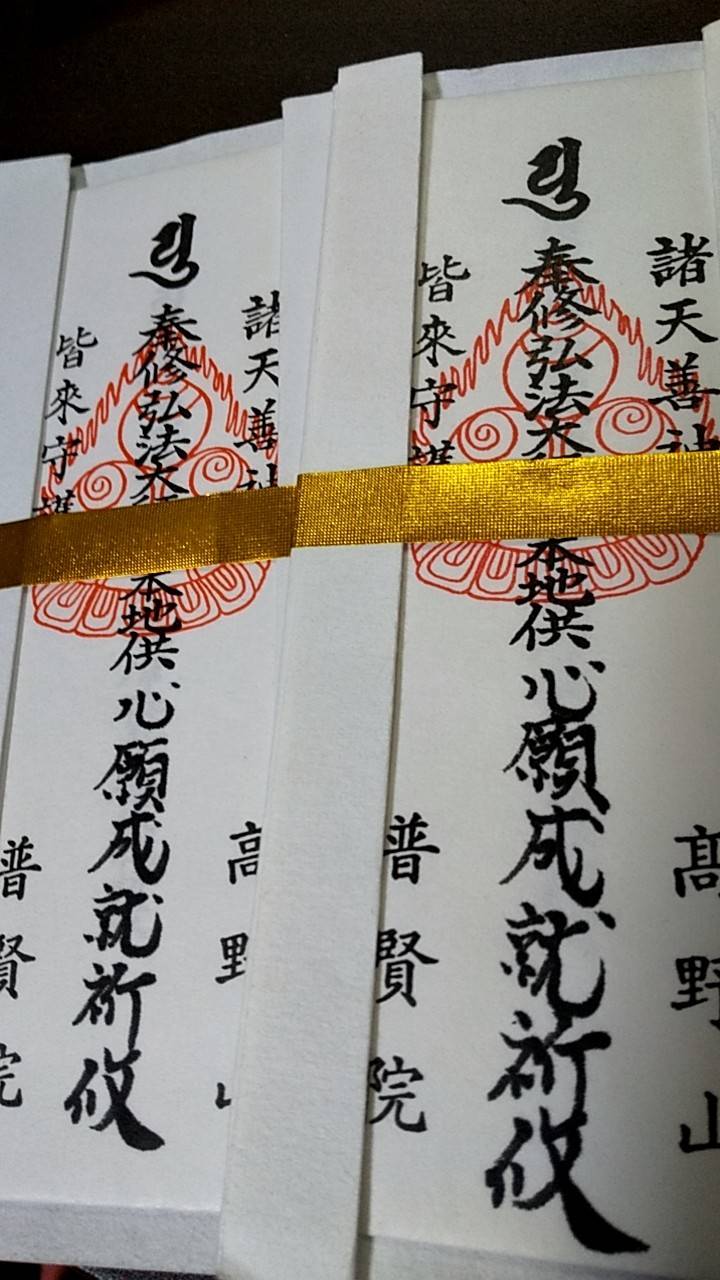 諸天善神
髙野山
奉修弘法大
本地供心願成就祈攸
皆來守護
普賢院
諸天善神
髙野
奉修弘法大
本地供心願成就祈攸
皆來守護
普賢院